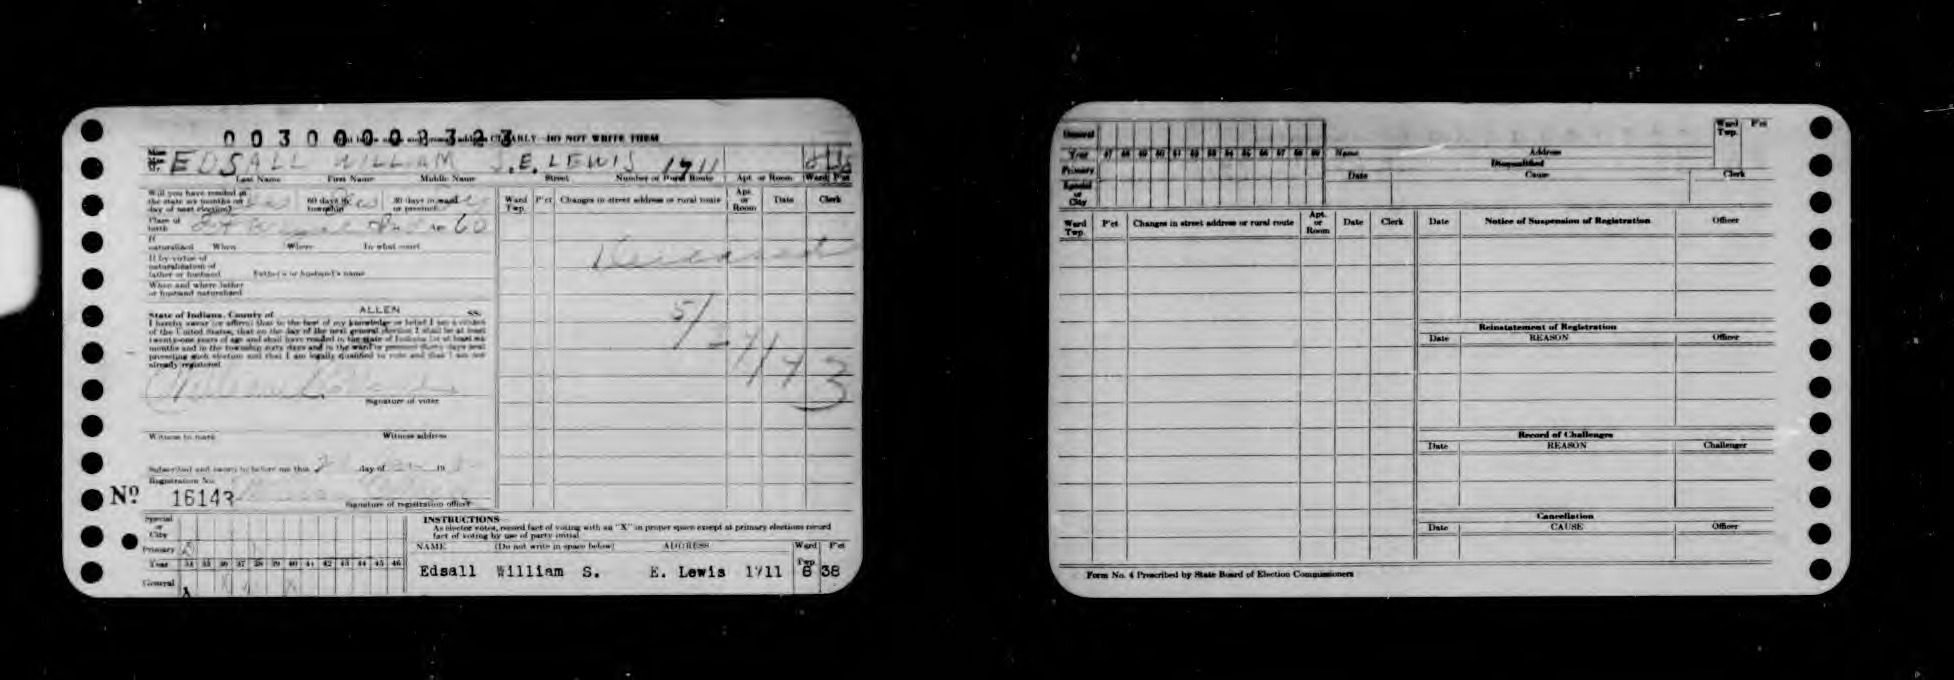 0030000 323
CLEARLY—DO NOT WRITE THEM
EDSALL WILLIAM S. E. LEWIS 1711
Last Name First Name Middle Name Street Number or Rural Route Apt. or Room Ward P'ct
Will you have resided in the state six months on day of next election? Yes 60 days in township Yes 30 days in ward or precinct
Place of birth Ft Wayne Ind 60
If naturalized When Where In what court
If by virtue of naturalization of father or husband Father's or husband's name
When and where father or husband naturalized
State of Indiana, County of ALLEN ss.
I hereby swear (or affirm) that to the best of my knowledge or belief I am a citizen
of the United States, that on the day of the next general election I shall be at least
twenty-one years of age and shall have resided in the state of Indiana for at least six
months and in the township sixty days and in the ward or precinct thirty days next
preceding such election and that I am legally qualified to vote and that I am not
already registered
Signature of voter
Witness to mark Witness address
Subscribed and sworn to before me this day of 19
Registration No.
Nº 1614
Signature of registration officer
Ward Twp. P'ct Changes in street address or rural route Apt. or Room Date Clerk
Deceased
5/27/43
Special or City
Primary
Year 34 35 36 37 38 39 40 41 42 43 44 45 46
General
INSTRUCTIONS
As elector votes, record fact of voting with an "X" in proper space except at primary elections record
fact of voting by use of party initial
NAME (Do not write in space below) ADDRESS Ward Twp P'ct
Edsall William S. E. Lewis 1711 8 38
General
Year 47 48 49 50 51 52 53 54 55 56 57 58 59
Primary
Special or City
Name Address Ward Twp. P'ct
Disqualified
Date Cause Clerk
Ward Twp. P'ct Changes in street address or rural route Apt. or Room Date Clerk
Date Notice of Suspension of Registration Officer
Reinstatement of Registration
Date REASON Officer
Record of Challenges
Date REASON Challenger
Cancellation
Date CAUSE Officer
Form No. 4 Prescribed by State Board of Election Commissioners